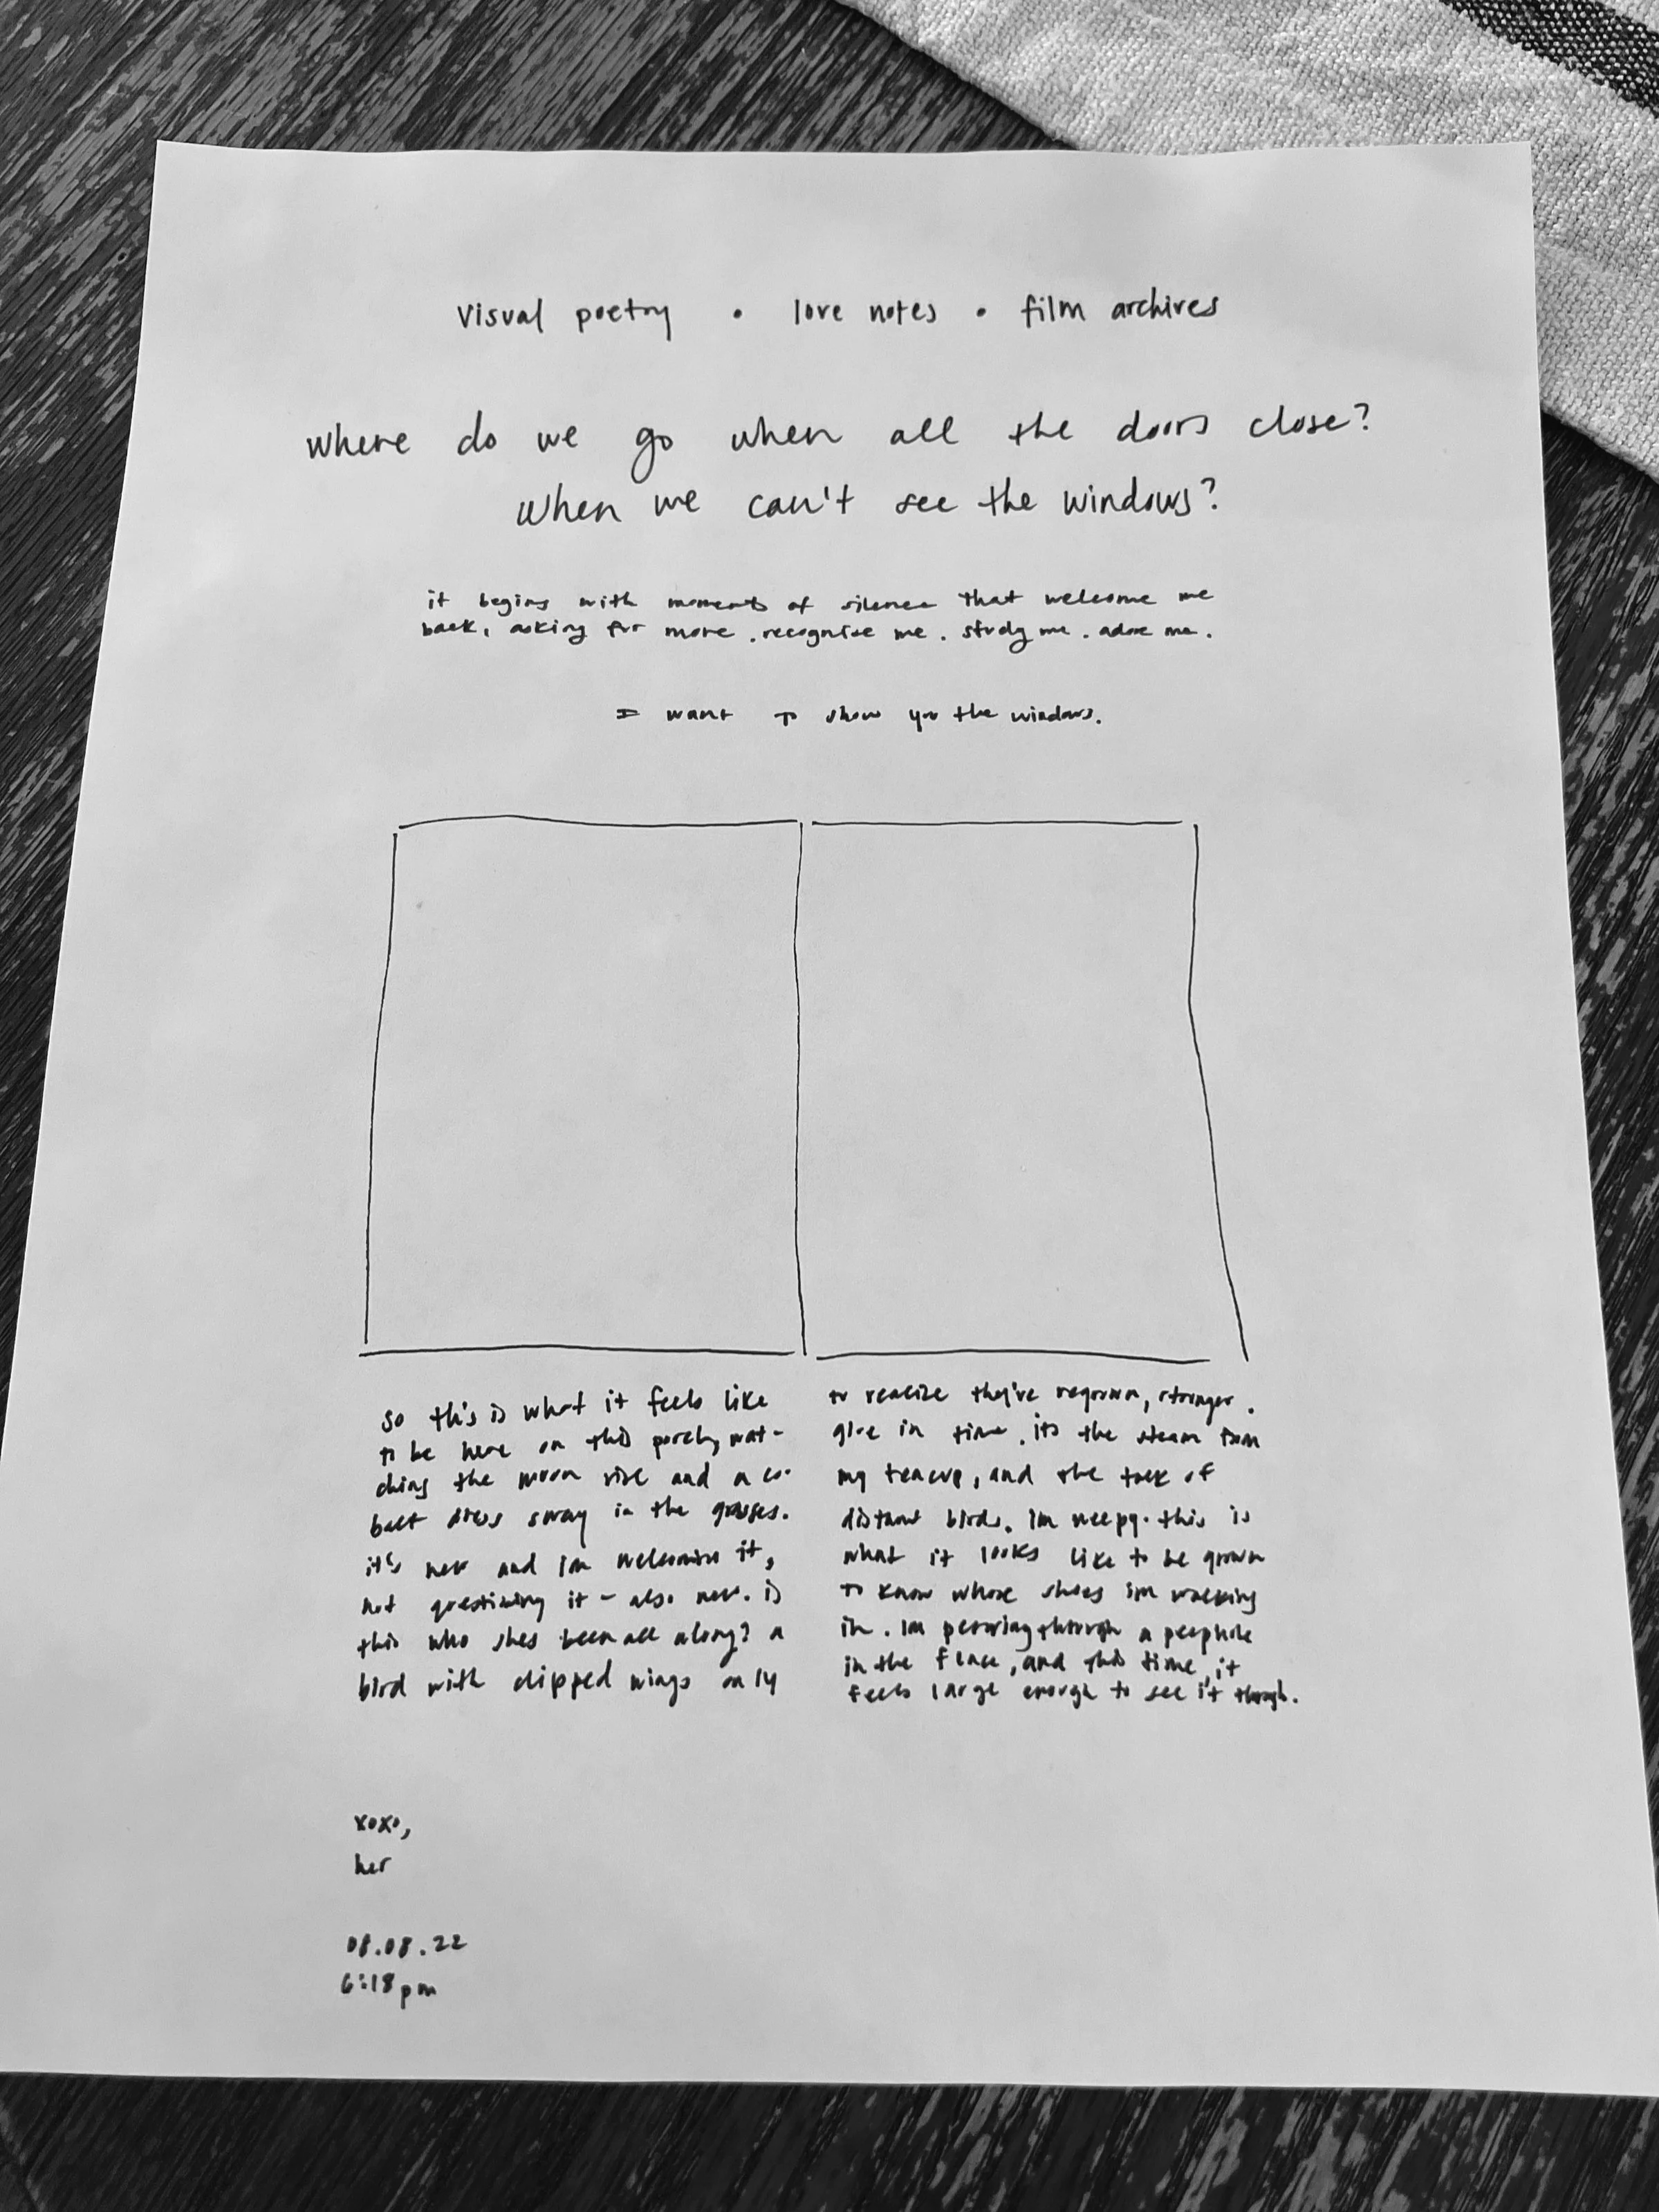 visual poetry • love notes • film archives
where do we go when all the doors close?
when we can't see the windows?
it begins with moments of silence that welcome me
back, asking for more. recognize me. study me. adore me.
I want to show you the windows.
so this is what it feels like
to be here on this porch, wat-
ching the moon rise and a co-
balt dress sway in the grasses.
it's new and im welcoming it,
not questioning it - also new. is
this who shes been all along? a
bird with clipped wings only
to realize they've regrown, stronger.
give in time. its the steam from
my teacup, and the talk of
distant birds. im weepy. this is
what it looks like to be grown
to know whose shoes im walking
in. im peering through a peephole
in the fence, and this time, it
feels large enough to see it through.
xoxo,
her
08.08.22
6:18pm